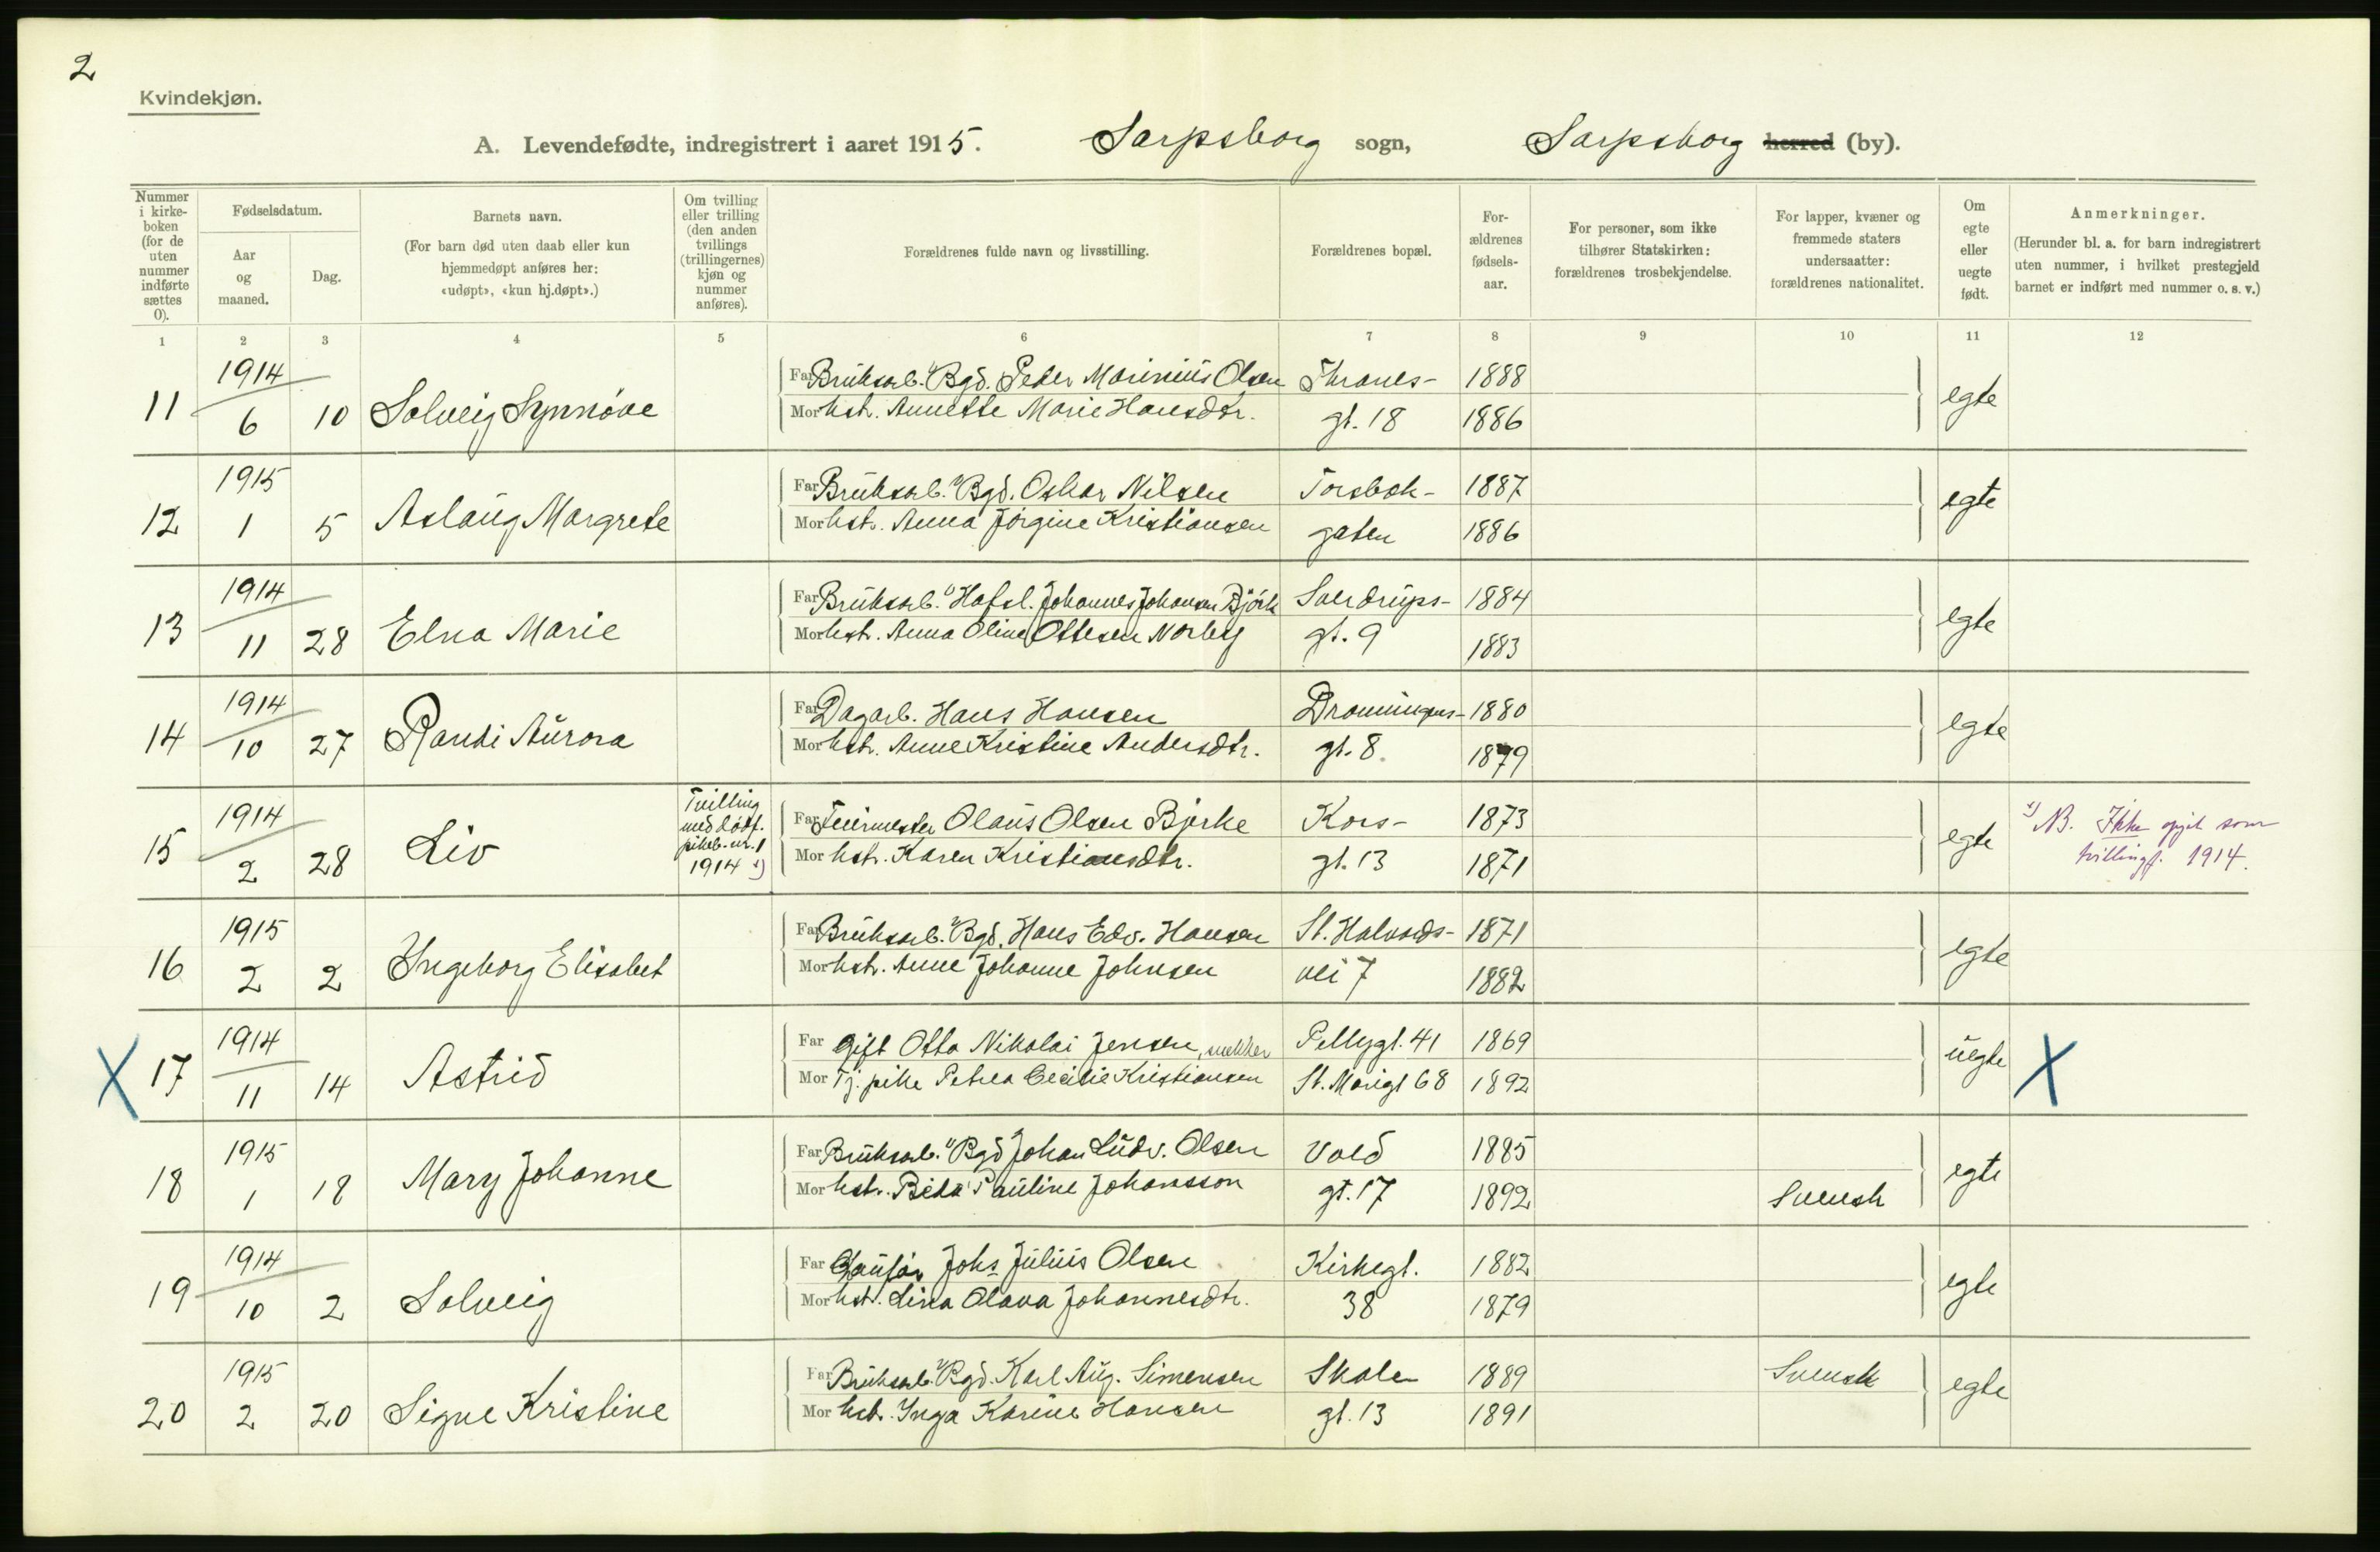 2
Kvindekjøn.
A. Levendefødte, indregistrert i aaret 1915. Sarpsborg sogn, Sarpsborg herred (by).
Nummer i kirke-boken (for de uten nummer indførte sættes 0).
Fødselsdatum.
Aar og maaned.
Dag.
Barnets navn.
(For barn død uten daab eller kun hjemmedøpt anføres her: «udøpt», «kun hj.døpt».)
Om tvilling eller trilling (den anden tvillings (trillingernes) kjøn og nummer anføres).
Forældrenes fulde navn og livsstilling.
Forældrenes bopæl.
For-ældrenes fødsels-aar.
For personer, som ikke tilhører Statskirken: forældrenes trosbekjendelse.
For lapper, kvæner og fremmede staters undersaatter: forældrenes nationalitet.
Om egte eller uegte født.
Anmerkninger.
(Herunder bl. a. for barn indregistrert uten nummer, i hvilket prestegjeld barnet er indført med nummer o. s. v.)
1 2 3 4 5 6 7 8 9 10 11 12
1914 Far Bruksarb. v/Bgd. Peder Marinius Olsen Thranes- 1888
11 6 10 Solveig Synnøve Mor hstr. Annette Marie Hansdtr. gt. 18 1886 egte
1915 Far Bruksarb. v/Bgd. Oskar Nilsen Torsbek- 1887
12 1 5 Aslaug Margrete Mor hstr. Anna Jørgine Kristiansen gaten 1886 egte
1914 Far Bruksarb. v/Hafsl. Johannes Johansen Bjørk Sverdrups- 1884
13 11 28 Elna Marie Mor hstr. Anna Oline Ottesen Norberg gt. 9 1883 egte
1914 Far Dagarb. Hans Hansen Dronningens- 1880
14 10 27 Randi Aurora Mor hstr. Anne Kristine Andersdtr. gt. 8. 1879 egte
1914 Tvilling med dødf. pikeb. nr. 1 1914 1) Far Feiermester Olaus Olsen Bjerke Kors- 1873
15 2 28 Liv Mor hstr. Karen Kristiansdtr. gt. 13 1871 egte 1) NB. Ikke opgit som tvillingf. 1914.
1915 Far Bruksarb. v/Bgd. Hans Edv. Hansen St. Halvards- 1871
16 2 2 Ingeborg Elisabet Mor hstr. Anne Johanne Johnsen vei 7 1882 egte
1914 Far Gift Otto Nikolai Jensen, snekker Pellygt. 41 1869
X 17 11 14 Astrid Mor Tj. pike Petrea Cecilie Kristiansen St. Marigt 68 1892 uegte X
1915 Far Bruksarb. v/Bgd Johan Ludv. Olsen Vold 1885
18 1 18 Mary Johanne Mor hstr. Beda Pauline Johansson gt. 17 1892 Svensk egte
1914 Far Johs Julius Olsen Kirkegt. 1882
19 10 2 Solveig Mor hstr. Lina Olava Johannesdtr. 38 1879 egte
1915 Far Bruksarb. v/Bgd. Karl Aug. Simensen Skole 1889 Svensk
20 2 20 Signe Kristine Mor hstr. Inga Karine Hansen gt. 13 1891 egte